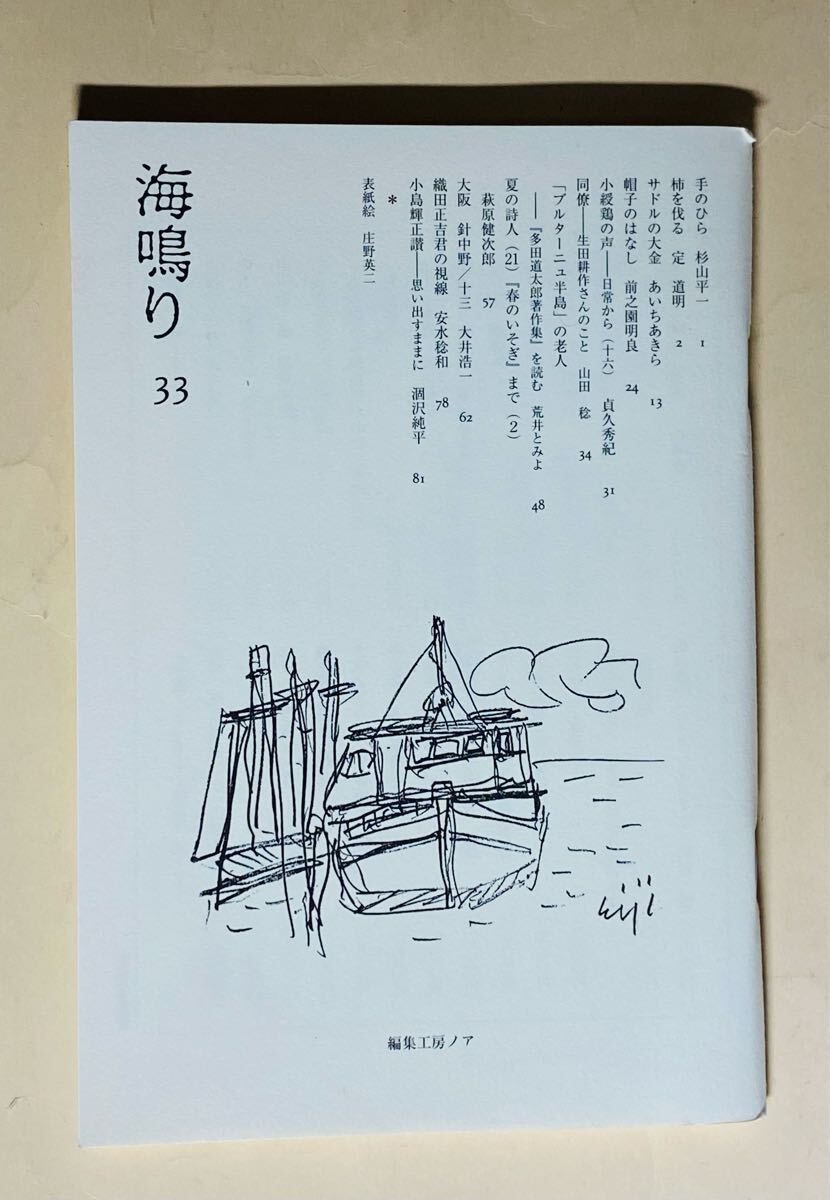 手のひら 杉山平一 1
柿を伐る 定 道明 2
サドルの大金 あいちあきら 13
帽子のはなし 前之園明良 24
小綬鶏の声――日常から(十六) 貞久秀紀 31
同僚――生田耕作さんのこと 山田 稔 34
「ブルターニュ半島」の老人
――『多田道太郎著作集』を読む 荒井とみよ 48
夏の詩人(21)『春のいそぎ』まで(2)
萩原健次郎 57
大阪 針中野/十三 大井浩一 62
織田正吉君の視線 安水稔和 78
小島輝正讃――思い出すままに 涸沢純平 81
*
表紙絵 庄野英二
海鳴り 33
eiji
編集工房ノア